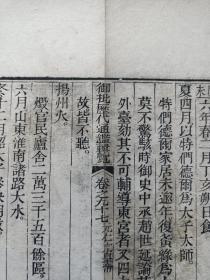 六年春二月丁亥朔日食
夏四月以特們德爾爲太子太師
特們德爾家居未逾年復黨緣爲
莫不驚駭時御史中丞趙世延論
外臺劾其不可輔導東宮者又四
故皆不聽
御批歷代通鑑輯覽 卷九十七 元仁宗
揚州火
燬官民廬舍二萬三千五百餘區
六月山東淮南諸路大水